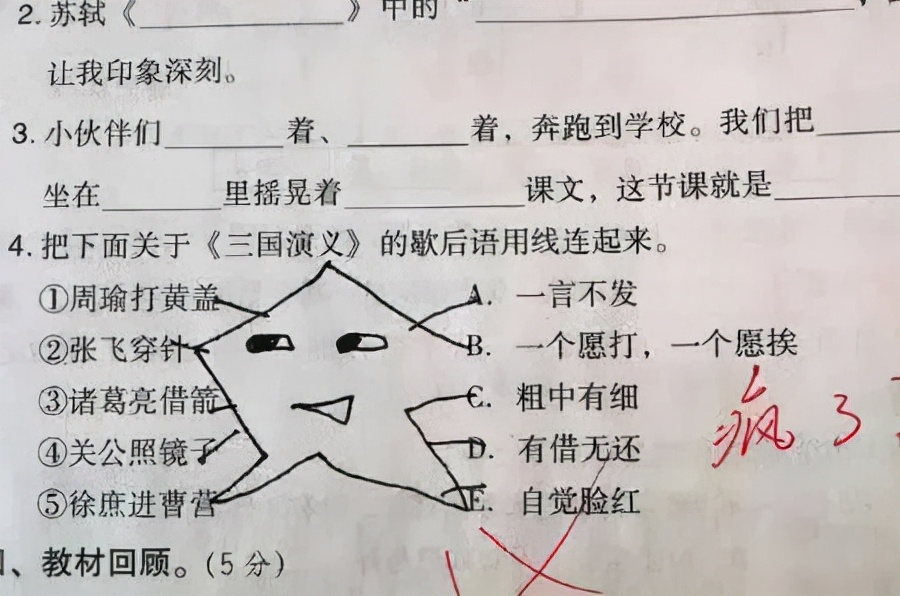 2. 苏轼《__________》中的“____________________
让我印象深刻。
3. 小伙伴们________着、________着，奔跑到学校。我们把______
坐在________里摇晃着____________课文，这节课就是________
4. 把下面关于《三国演义》的歇后语用线连起来。
①周瑜打黄盖 A. 一言不发
②张飞穿针 B. 一个愿打，一个愿挨
③诸葛亮借箭 C. 粗中有细
④关公照镜子 D. 有借无还
⑤徐庶进曹营 E. 自觉脸红
疯了
、教材回顾。(5分)